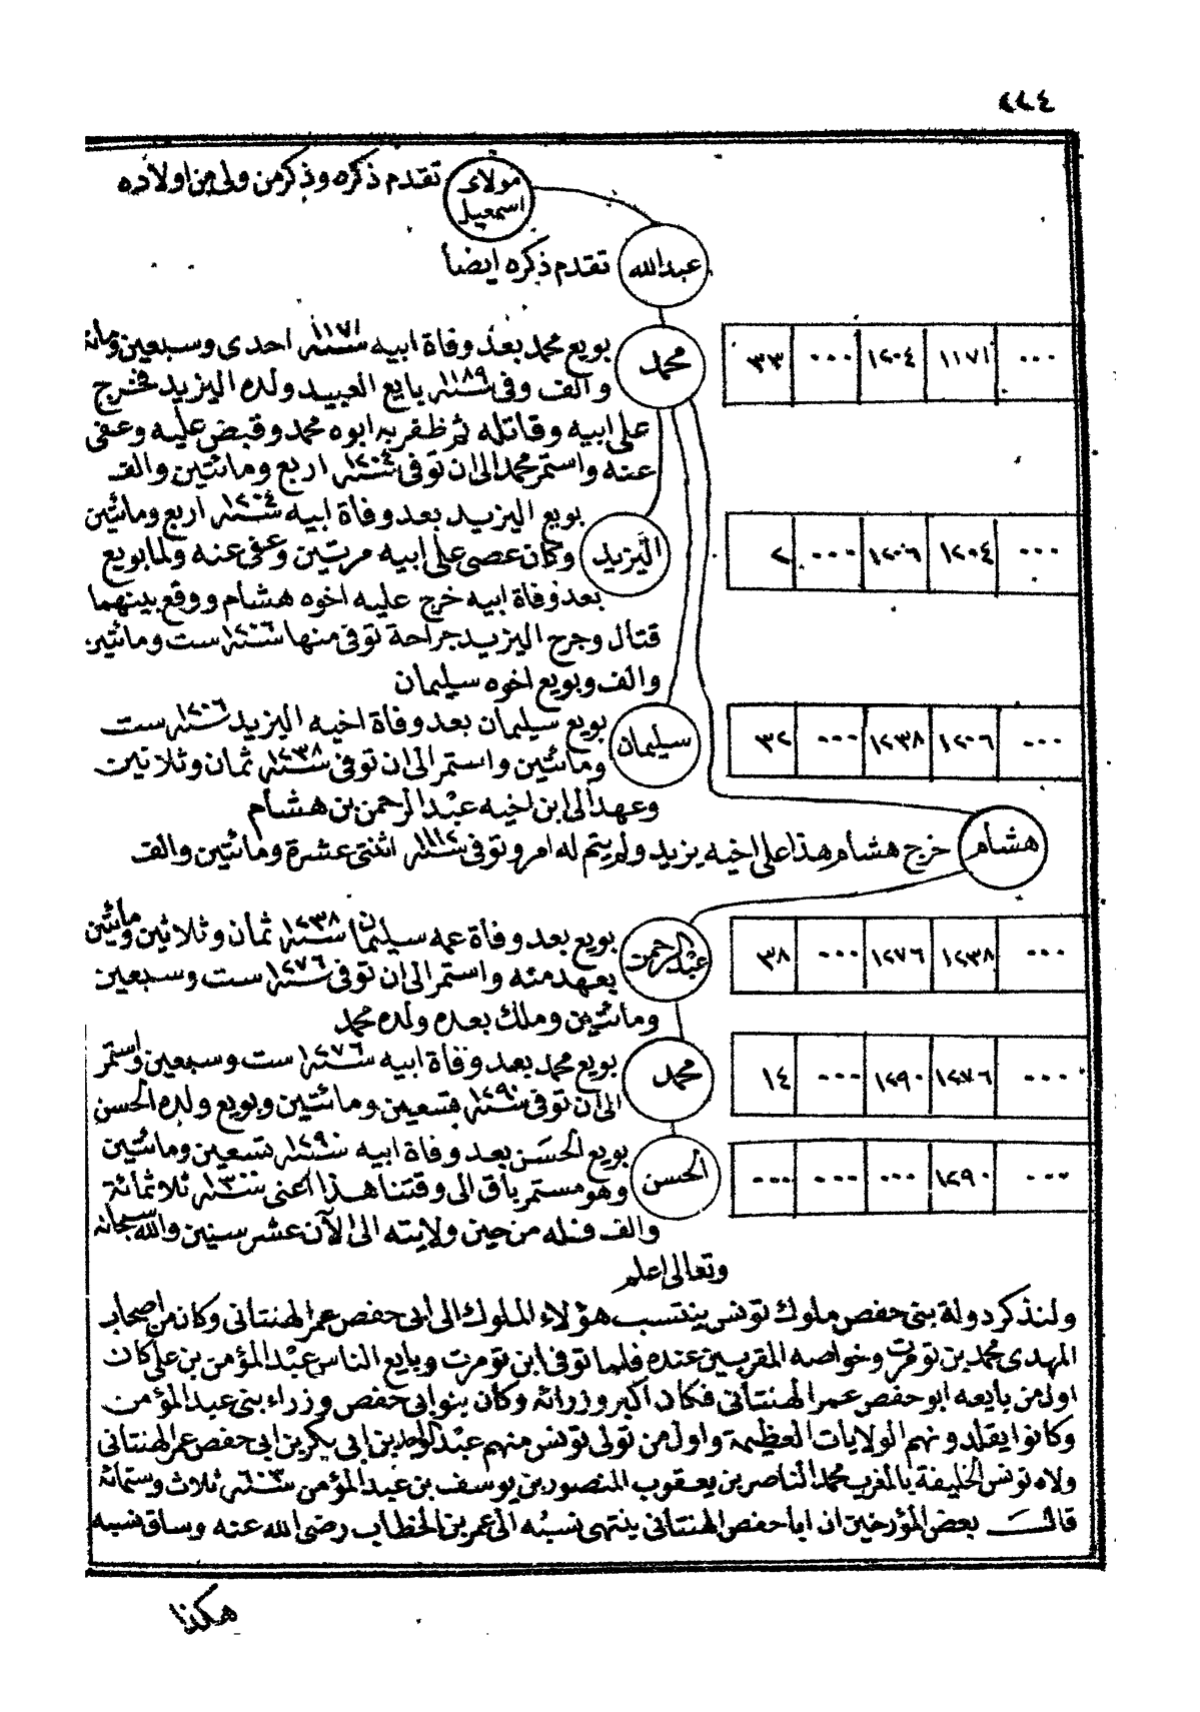 ٤٢٤
مولاى اسمعيل تقدم ذكره وذكر من ولى من اولاده
عبدالله تقدم ذكره ايضاً
محمد
بويع محمد بعد وفاة ابيه سنة ١١٧١ احدى وسبعين ومائة
والف وفى سنة ١١٨٩ بايع العبيد ولده اليزيد فخرج
على ابيه وقاتله ثم ظفر به ابوه محمد وقبض عليه وعفى
عنه واستمر محمد الى ان توفى سنة ١٢٠٤ اربع ومائتين والف
٠٠٠ ١١٧١ ١٢٠٤ ٠٠٠ ٣٣
اليَزيد
بويع اليزيد بعد وفاة ابيه سنة ١٢٠٤ اربع ومائتين
وكان عصى على ابيه مرتين وعفى عنه ولما بويع
بعد وفاة ابيه خرج عليه اخوه هشام ووقع بينهما
قتال وجرح اليزيد جراحة توفى منها سنة ١٢٠٦ ست ومائتين
والف وبويع اخوه سليمان
٠٠٠ ١٢٠٤ ١٢٠٦ ٠٠٠ ٢
سليمان
بويع سليمان بعد وفاة اخيه اليزيد سنة ١٢٠٦ ست
ومائتين واستمر الى ان توفى سنة ١٢٣٨ ثمان وثلاثين
وعهد الى ابن اخيه عبد الرحمن بن هشام
٠٠٠ ١٢٠٦ ١٢٣٨ ٠٠٠ ٣٢
هشام خرج هشام هذا على اخيه يزيد ولم يتم له امر وتوفى سنة ١١١٢ اثنتى عشرة ومائتين والف
عبدالرحمن
بويع بعد وفاة عمه سليمان سنة ١٢٣٨ ثمان وثلاثين ومائتين
بعهد منه واستمر الى ان توفى سنة ١٢٧٦ ست وسبعين
ومائتين وملك بعده ولده محمد
٠٠٠ ١٢٣٨ ١٢٧٦ ٠٠٠ ٣٨
محمد
بويع محمد بعد وفاة ابيه سنة ١٢٧٦ ست وسبعين واستمر
الى ان توفى سنة ١٢٩٠ تسعين ومائتين وبويع ولده الحسن
٠٠٠ ١٢٧٦ ١٢٩٠ ٠٠٠ ١٤
الحسن
بويع الحسَن بعد وفاة ابيه سنة ١٢٩٠ تسعين ومائتين
وهو مستمر باق الى وقتنا هذا اعنى سنة ١٣٠٠ ثلاثمائة
والف فله من حين ولايته الى الآن عشر سنين والله سبحانه
وتعالى اعلم
٠٠٠ ١٢٩٠ ٠٠٠ ٠٠٠ ٠٠٠
ولنذكر دولة بنى حفص ملوك تونس ينتسب هؤلاء الملوك الى ابى حفص عمر الهنتانى وكان من اصحاب
المهدى محمد بن تومرت وخواصه المقربين عنده فلما توفى ابن تومرت وبايع الناس عبد المؤمن بن على كان
اول من بايعه ابو حفص عمر الهنتانى فكان اكبر وزرائه وكان بنو ابى حفص وزراء بنى عبد المؤمن
وكانوا يقلدونهم الولايات العظيمة واول من تولى تونس منهم عبد الواحد بن ابى بكر بن ابى حفص عمر الهنتانى
ولاه تونس الخليفة بالمغرب محمد الناصر بن يعقوب المنصور بن يوسف بن عبد المؤمن سنة ٦٠٣ ثلاث وستمائة
قال بعض المؤرخين ان ابا حفص الهنتانى ينتهى نسبه الى عمر بن الخطاب رضى الله عنه وساق نسبه
هكذا